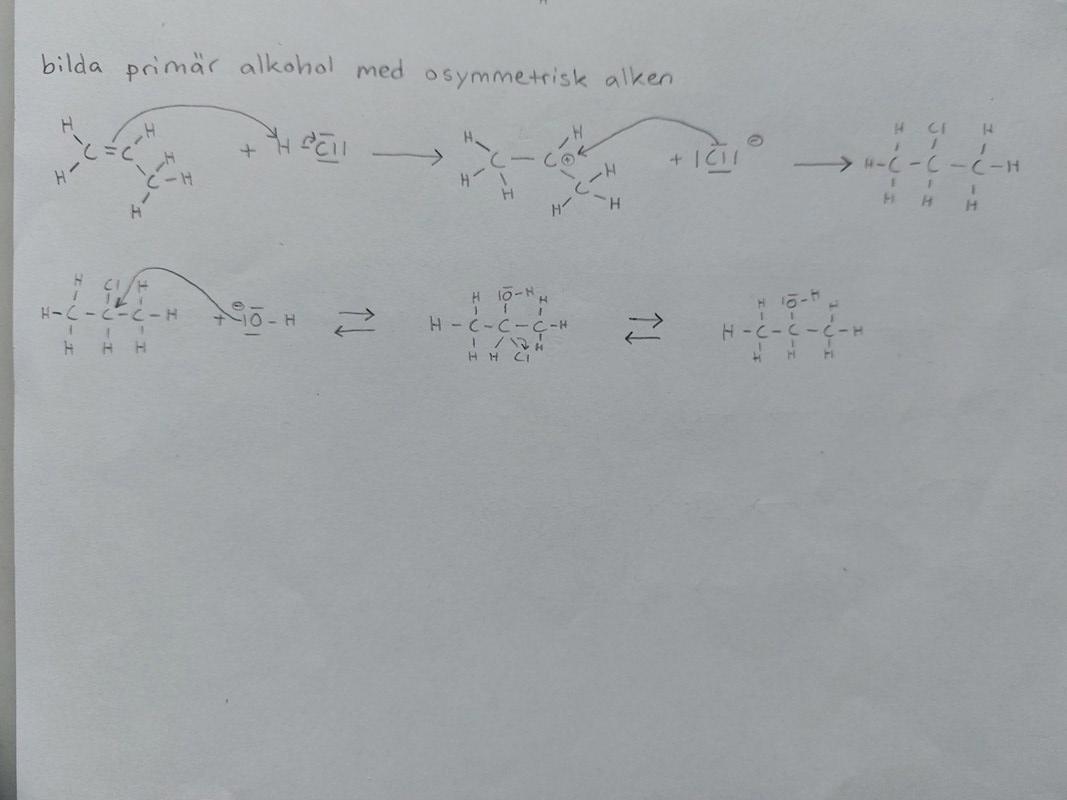 bilda primär alkohol med osymmetrisk alken
H H H H H Cl H
C = C H + H Cl C — C ⊕ H + Cl ⊖ H - C - C - C - H
H C - H H H C H H H H
H H
H Cl H H O - H H H O - H H
H - C - C - C - H + ⊖ O - H H - C - C - C - H H - C - C - C - H
H H H H H Cl H H H H